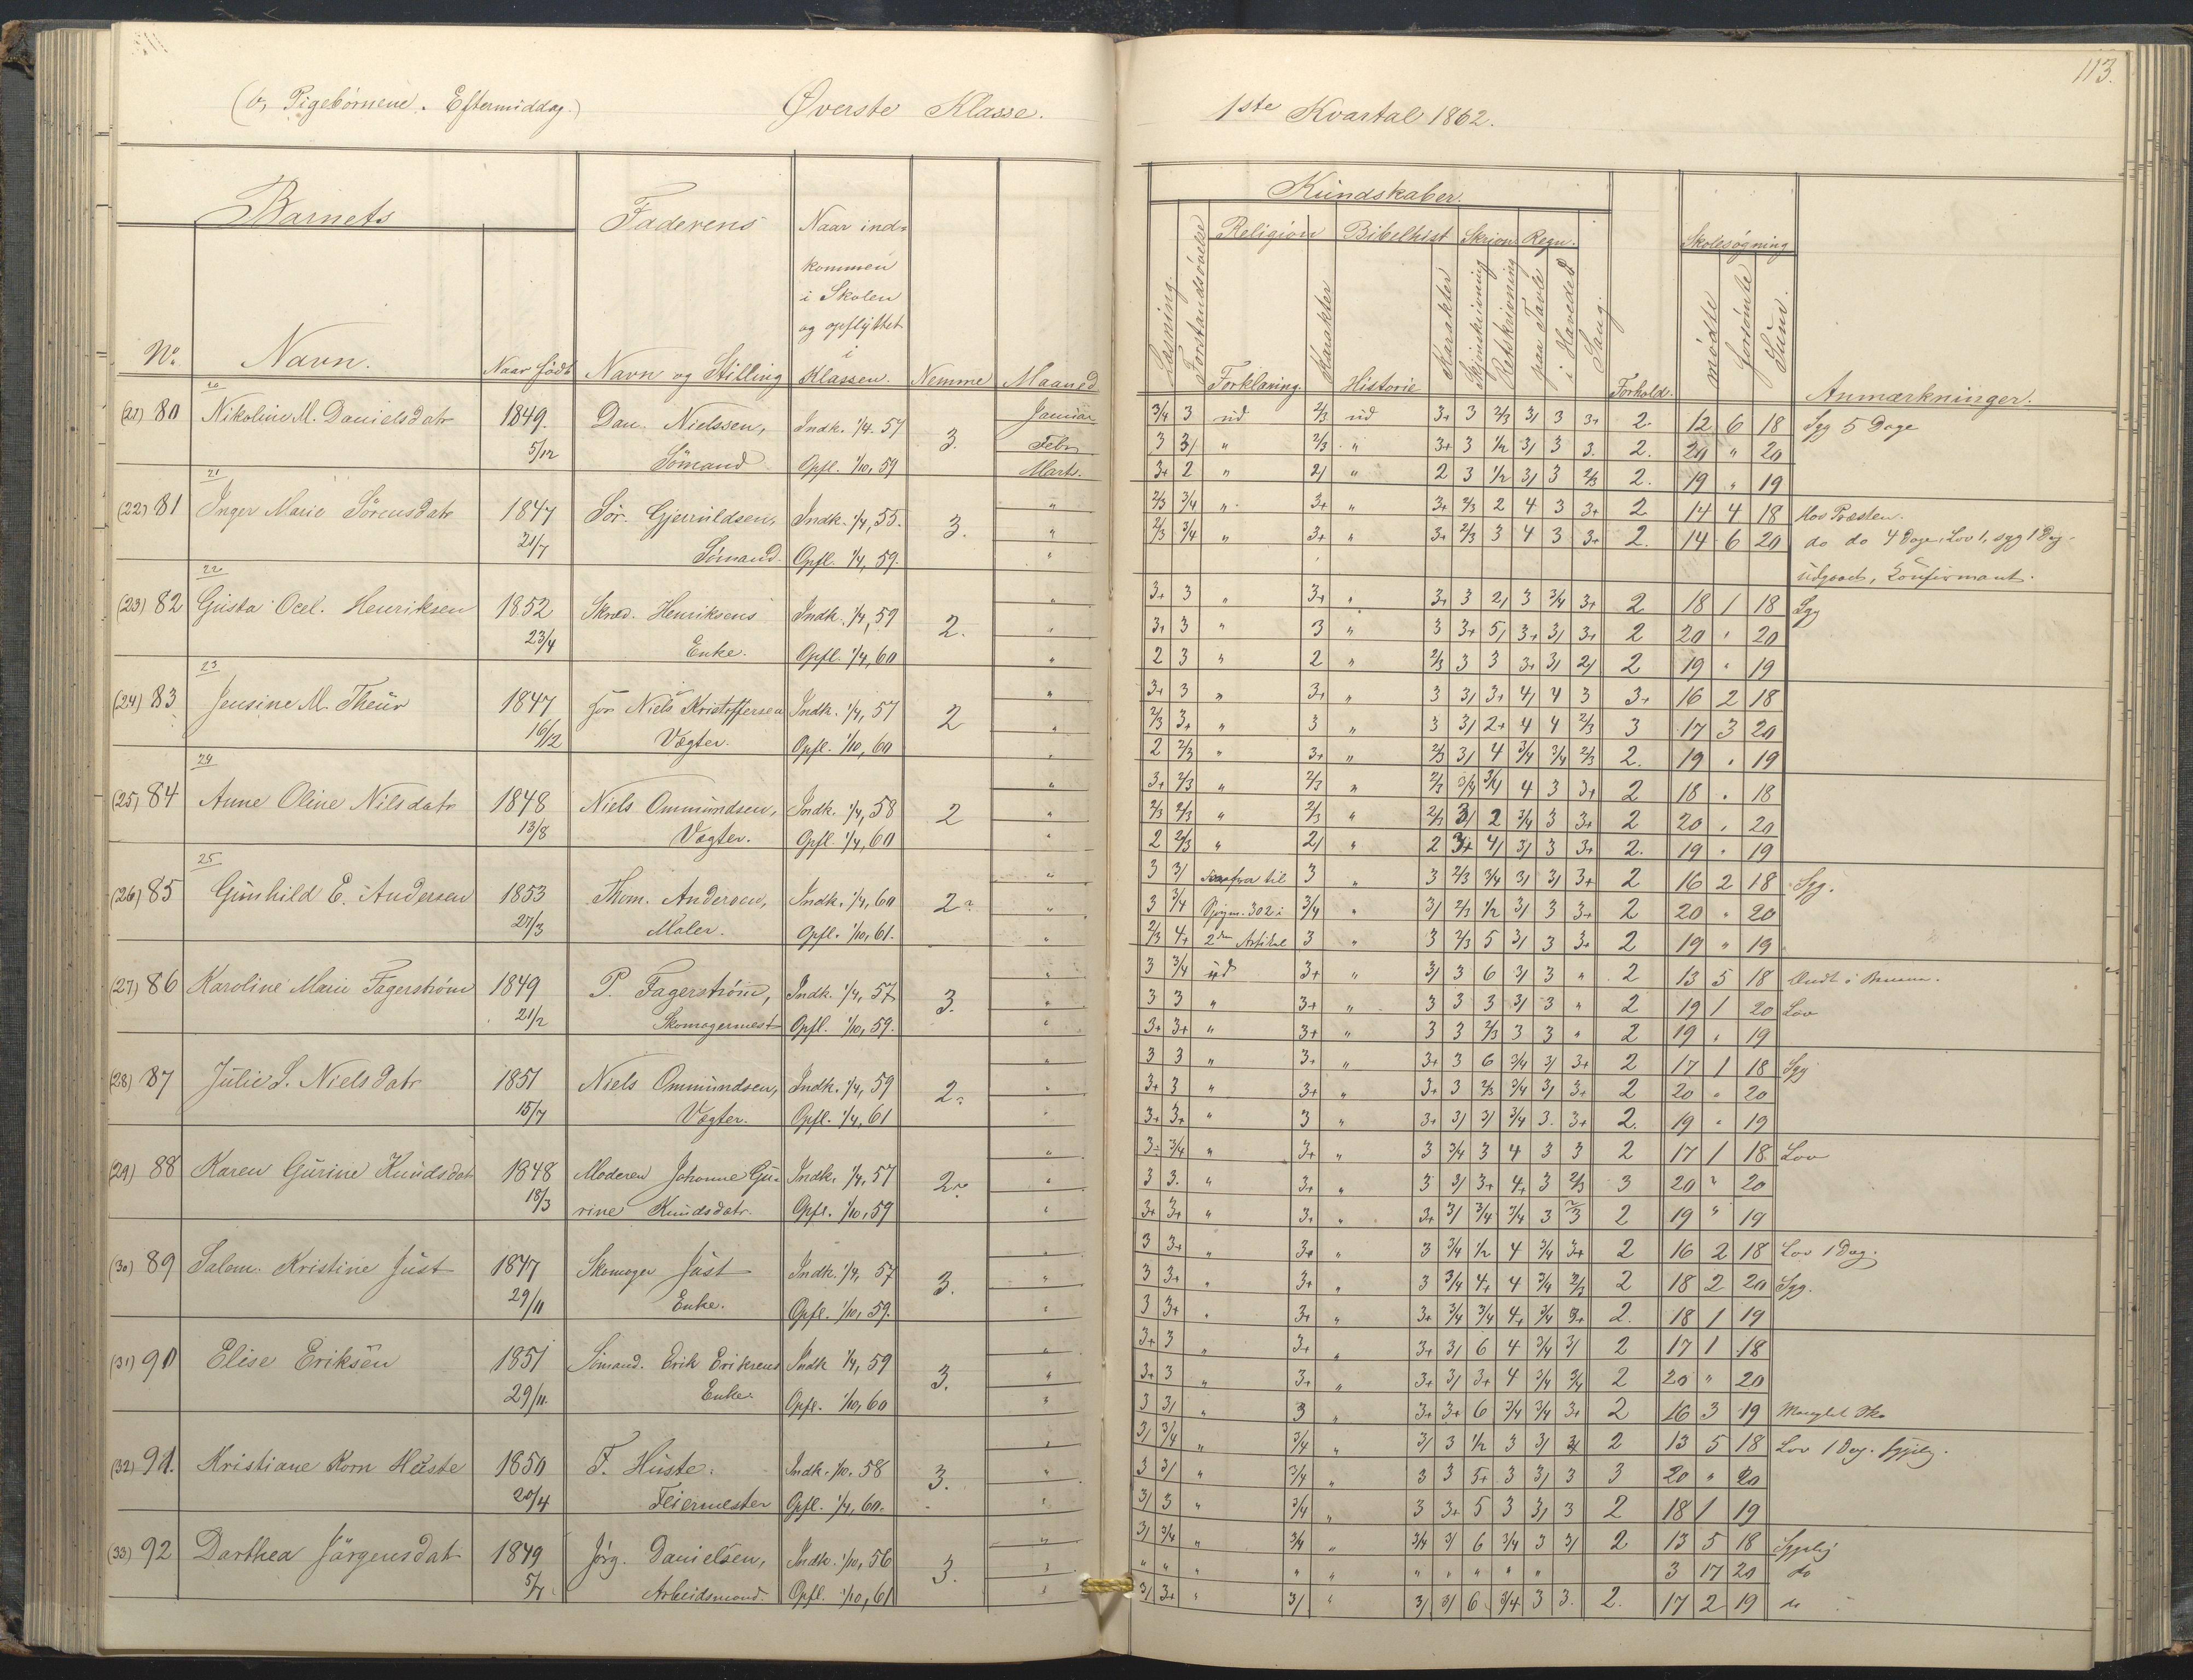 (b, Pigebörnene. Eftermiddag.) Øverste Klasse.
Barnets Faderens Naar ind-
kommen
i Skolen
og opflyttet
i
No. Navn. Naar födt Navn og Stilling Klassen. Nemme Maaned
20
(21) 80 Nikoline M. Danielsdatr 1849. Dan. Nielssen, Indk. 1/4. 57 3. Januar
5/12 Sömand Opfl. 1/10, 59 Febr
Marts.
21
(22) 81 Inger Marie Sörensdatr 1847 Sör. Gjeruldsen, Indk. 1/4, 55. 3. "
21/7 Sömand. Opfl. 1/4, 59. "
22
(23) 82 Gusta Ocel. Henriksen 1852 Skræd. Henriksens Indk. 1/4, 59 2. "
23/4 Enke. Opfl. 1/4, 60 "
23
(24) 83 Jensine M. Theur 1847 for Niels Kristoffersen Indk. 1/4, 57 2 "
16/12 Vægter. Opfl. 1/10, 60 "
24
(25) 84 Anne Oline Nilsdatr 1848 Niels Ommundsen, Indk. 1/4, 58 2 "
13/8 Vægter. Opfl. 1/4, 60 "
25
(26) 85 Gunhild E. Andersen 1853 Thom. Andersen, Indk. 1/4, 60 2 "
27/3 Maler. Opfl. 1/10, 61. "
(27) 86 Karoline Marie Fagerström 1849 P. Fagerström, Indk. 1/4, 57 3. "
21/2 Skomagermest Opfl. 1/10, 59. "
(28) 87 Julie S. Nielsdatr 1851 Niels Ommundsen, Indk. 1/4, 59 2 "
15/7 Vægter. Opfl. 1/4, 61 "
(29) 88 Karen Gurine Knudsdat 1848 Moderen Johanne Gu- Indk. 1/4, 57 2 "
18/3 rine Knudsdatr. Opfl. 1/10, 59 "
(30) 89 Salem. Kristine Just 1847 Skomager Just Indk. 1/4, 57 3. "
29/11 Enke. Opfl. 1/10, 59. "
(31) 90 Elise Eriksen 1851 Sömand. Erik Eriksens Indk 1/4, 59 3. "
29/11. Enke. Opfl. 1/10, 60 "
(32) 91. Kristiane Korn Huste 1850 F. Huste. Indk. 1/10. 58 3. "
20/4 Feiermester Opfl. 1/4, 60. "
(33) 92 Darthea Jörgensdat 1849 Jörg. Danielsen, Indk. 1/10, 56 3. "
5/7 Arbeidsmand. Opfl. 1/10, 61 "
113.
1ste Kvartal 1862.
Kundskaber.
Religion Bibelhist Skrivn. Regn. Skolesøgning
Læsning. Forstandsövelse Forklaring. Karakter Historie Karakter Skjönskrivning Retskrivning paa Tavle i Hovedet Sang. Forhold. mödte forsömte Sum. Anmærkninger.
3/4 3 ud 2/3 ud 3+ 3 2/3 3/ 3 3+ 2. 12 6 18 Syg 5 Dage
3 3/ " 2/3 " 3+ 3 1/2 3/ 3 3. 2. 20 " 20
3+ 2 " 2/ " 2 3 1/2 3/ 3 2/3 2. 19 " 19
2/3 3/4 " 3+ " 3+ 2/3 2 4 3 3+ 2 14 4 18 Hos Præsten.
2/3 3/4 " 3+ " 3+ 2/3 3 4 3 3+ 2. 14 6 20 do do 4 Dage, Lov 1, syg 1 Dag.
udgaaet, Konfirmant.
3+ 3 " 3+ " 3+ 3 2/ 3 3/4 3+ 2 18 1 18 Syg
3+ 3 " 3 " 3 3+ 5/ 3+ 3/ 3+ 2 20 " 20
2 3 " 2 " 2/3 3 3 3+ 3/ 2/ 2 19 " 19
3+ 3 " 3+ " 3 3/ 3+ 4/ 4 3 3+ 16 2 18
2/3 3+ " 3 " 3 3/ 2+ 4 4 2/3 3 17 3 20
2 2/3 " 3+ " 2/3 3/ 4 3/4 3/4 2/3 2. 19 " 19
3+ 2/3 " 2/3 " 2/3 3/4 3/4 4 3 3+ 2 18 " 18
2/3 2/3 " 2/3 " 2/3 3/ 2 3/4 3 3+ 2 20 " 20
2 2/3 " 2/ " 2 3+ 4/ 3/ 3 3+ 2. 19 " 19
3 3/ fra til 3 " 3 2/3 3/4 3/ 3/ 3+ 2 16 2 18 Syg.
3 3/4 Spgm. 302 i 3/4 " 3/ 2/3 1/2 3/ 3 3+ 2 20 " 20
2/3 4+ 2den Artikel 3 " 3 2/3 5 3/ 3 3+ 2 19 " 19
3 3/4 ud 3+ " 3/ 3 6 3/ 3 " 2 13 5 18 Ondt i
3 3 " 3+ " 3 3 3 3/ 3 " 2 19 1 20 Lov
3+ 3+ " 3+ " 3 3 2/3 3 3 " 2 19 " 19
3 3 " 3+ " 3+ 3 6 3/4 3/ 3+ 2 17 1 18 Syg
3+ 3 " 3+ " 3+ 3 2/3 3/4 3/ 3+ 2 20 " 20
3+ 3+ " 3 " 3+ 3/ 3/ 3/4 3. 3+ 2. 19 " 19
3 3/4 " 3+ " 3 3/4 3 4 3 3 2 17 1 18 Lov
3 3. " 3+ " 3 3/ 3+ 4+ 3 2/3 3 20 " 20
3+ 3+ " 3+ " 3+ 3/ 3/4 3/4 3 2/3 2 19 " 19
3 3+ " 3+ " 3 3/4 1/2 4 3/4 3+ 2 16 2 18 Lov 1 Dag.
3 3+ " 3+ " 3 3/4 4+ 4 3/4 2/3 2 18 2 20 Syg.
3 3+ " 3+ " 3+ 3/4 3/4 4+ 3/4 3+ 2. 18 1 19
3+ 3 " 3+ " 3+ 3/ 6 4 3/4 3/ 2 17 1 18
3+ 3 " 3+ " 3+ 3/ 3+ 4 3/4 3/4 2 20 " 20
3 3/ " 3 " 3+ 3+ 6 3/4 3/4 3+ 2 16 3 19 Manglet Sko
3/ 3/4 " 3/4 " 3/ 3 1/2 3 3/ 3/ 2 13 5 18 Lov 1 Dag.
3 3/ " 3/4 " 3 3 5+ 3 3/ 3 3 20 " 20
3/ 3 " 3/4 " 3 3+ 5 3 3/ 3 2 18 1 19
3/ 3/4 " 3/4 " 3/4 3/ 6 3/4 3 3/ 2 13 5 18 Sygelig
" " " " " " " " " " 3 17 20 do
3/ 3+ " 3/ " 3/ 3/ 6 3/4 3 3. 2. 17 2 19